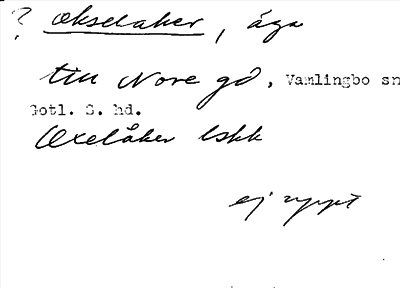 ? oxelåker, äga
till Nore gd, Vamlingbo sn
Gotl. S. hd.
Oxelåker lskk
ej uppt